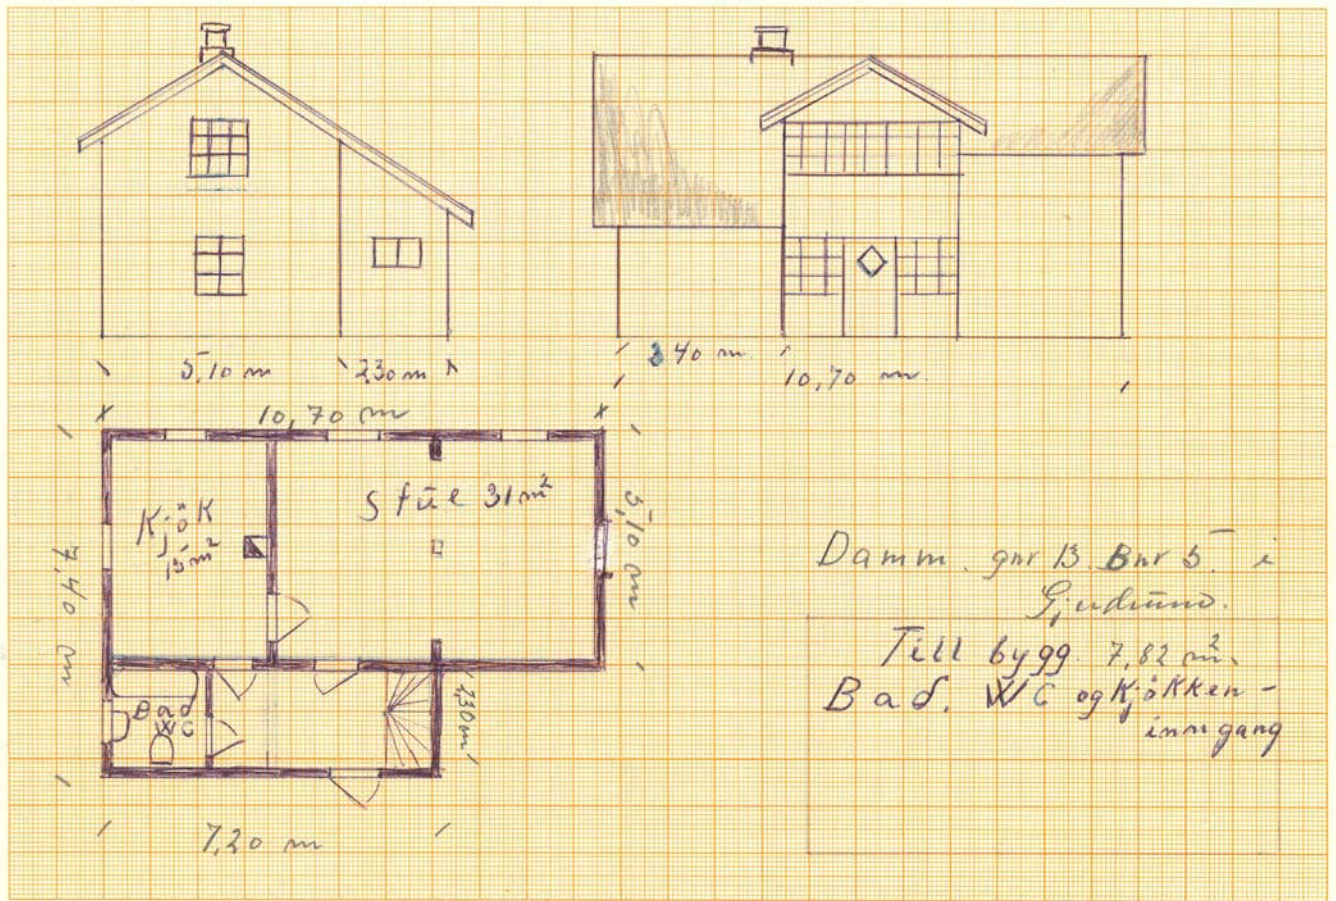 5,10 m 2,30 m
3 40 m.
10,70 m.
10,70 m
Kjök
15 m²
Stúe 31 m²
5,10 m
7,40 m
Bad
WC
2,30 m
7,20 m
Damm. gnr 13. Bnr 5. i
Till bygg. 7,82 m².
Bad. WC og Kjökken-
inngang